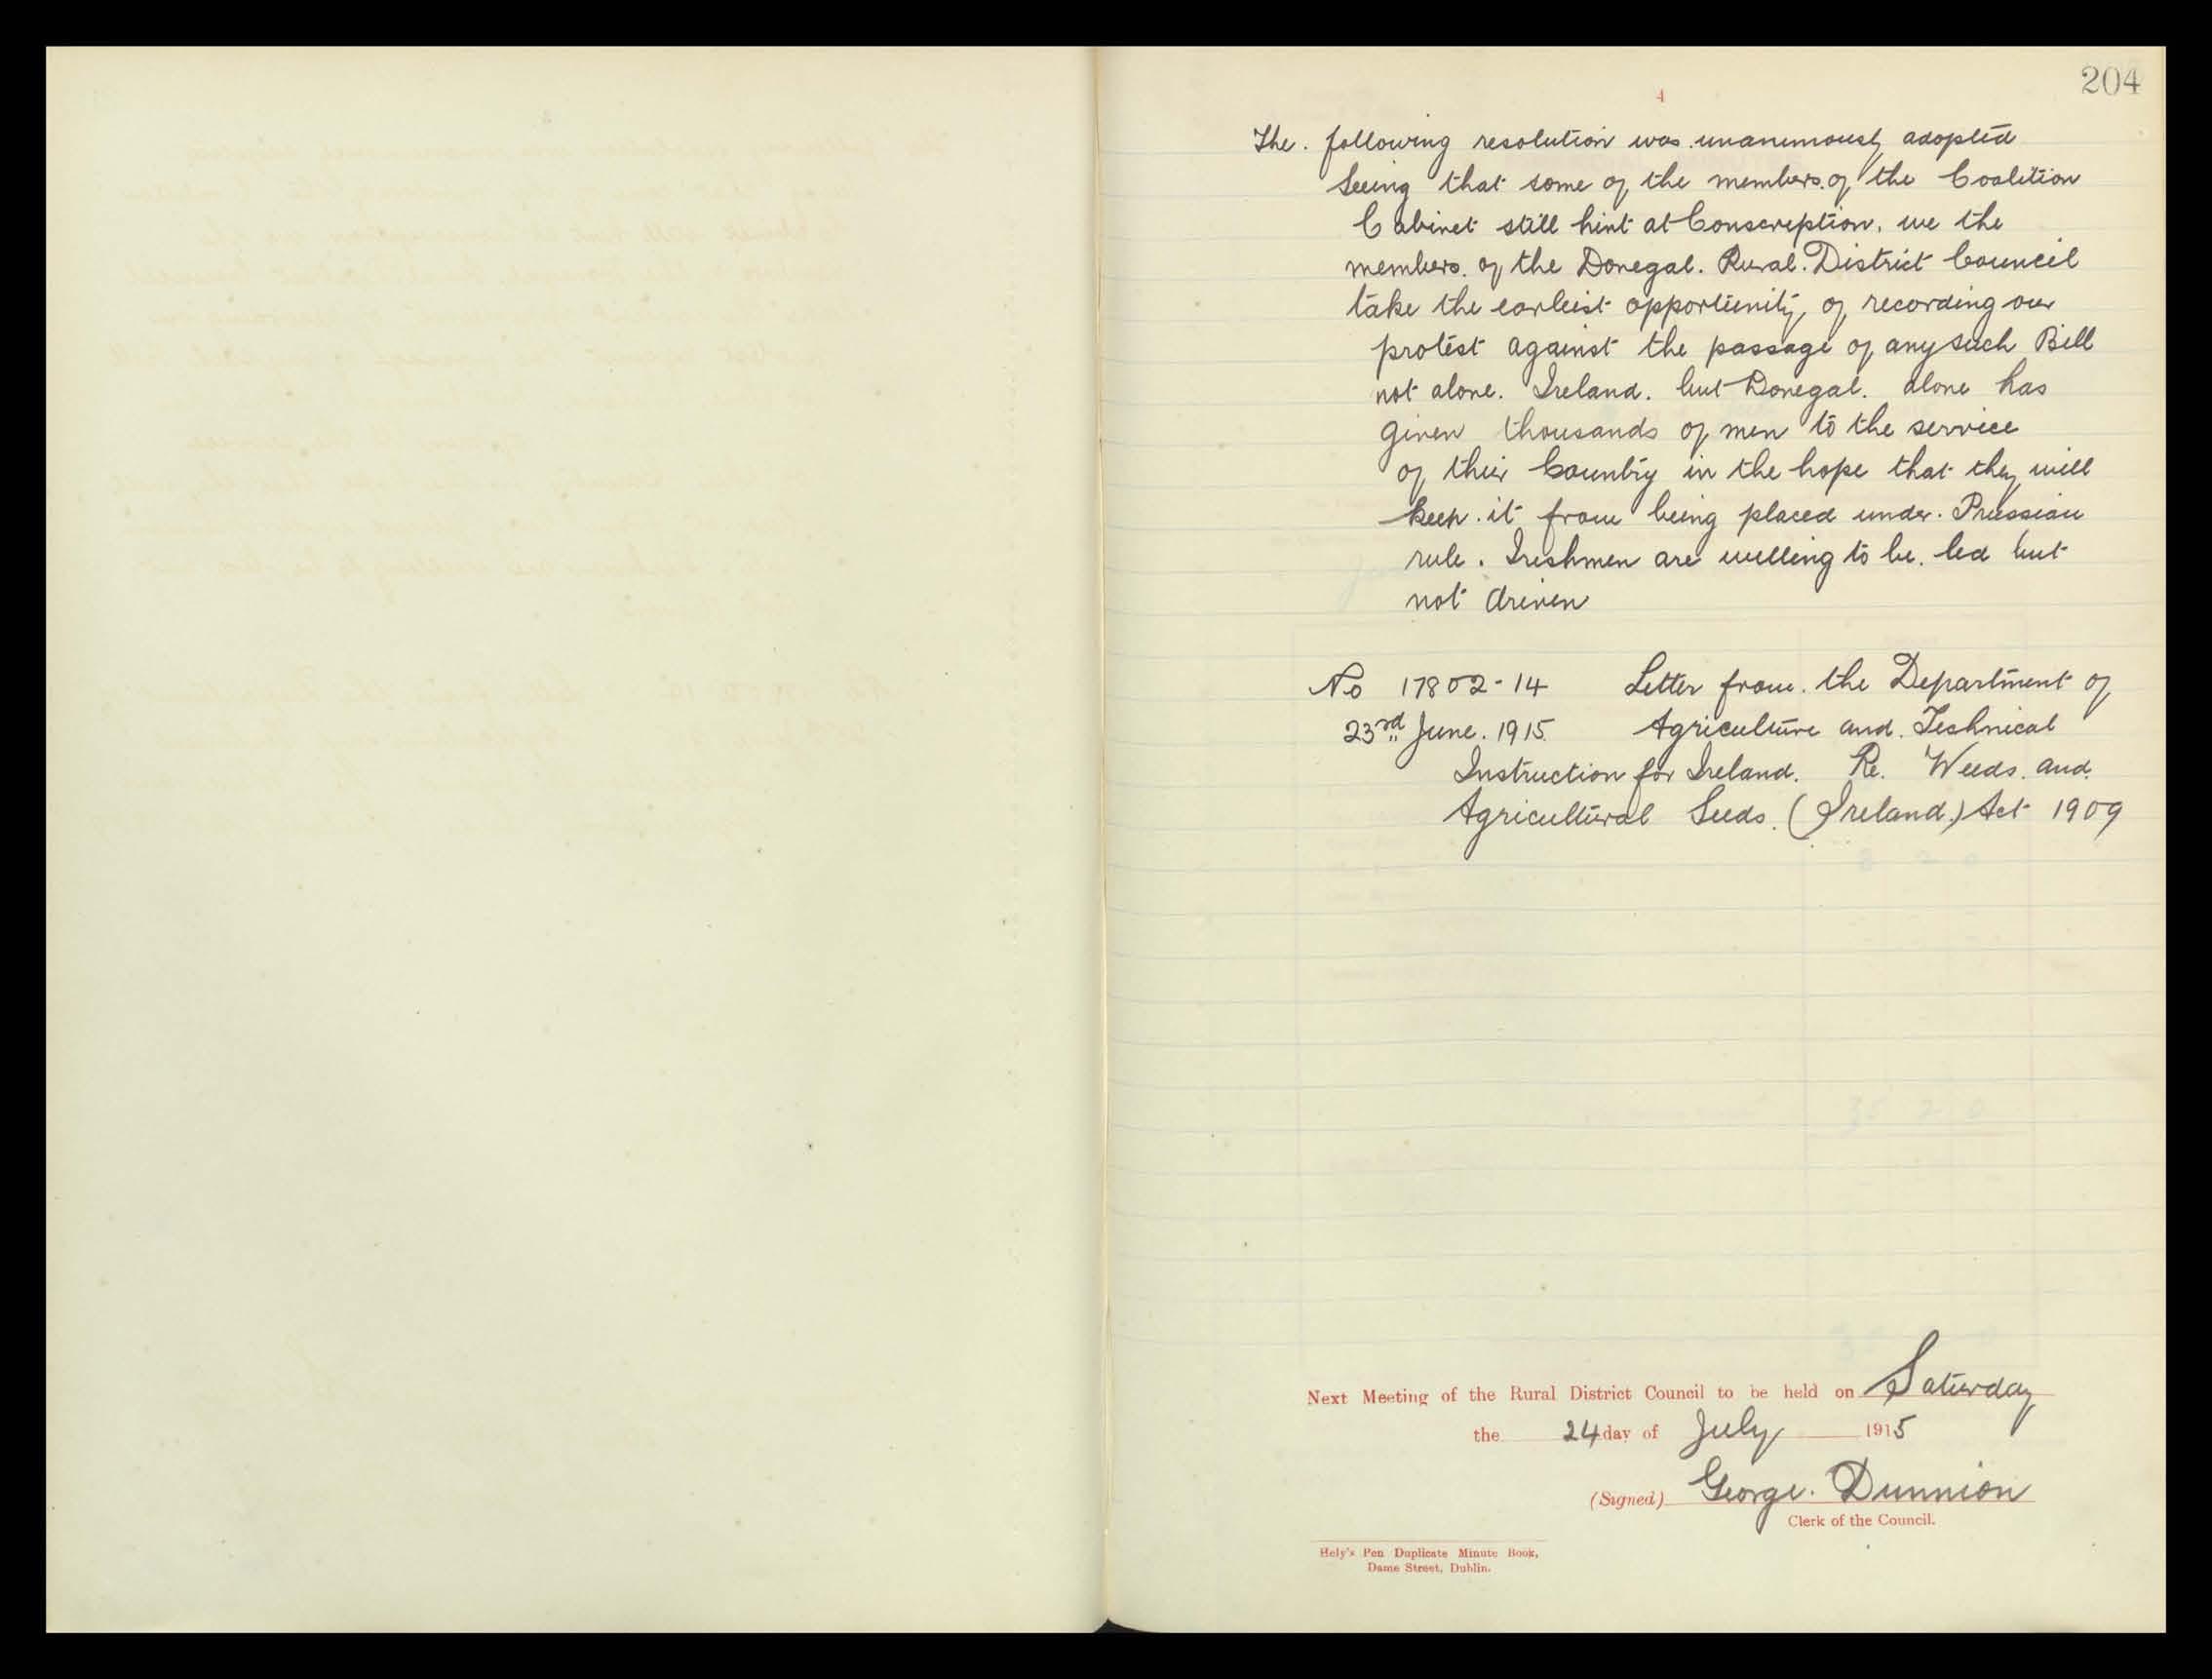 204
4
The. following resolution was unanimously adopted
Seeing that some of the members of the Coalition
Cabinet still hint at Conscription, we the
members. of the Donegal. Rural. District Council
take the earleist opportunity of recording our
protest against the passage of any such Bill
not alone. Ireland. but Donegal. alone has
given thousands of men to the service
of their Country in the hope that they will
keep. it from being placed under. Prussian
rule. Irishmen are willing to be. led but
not driven
No 17802-14 Letter from. the Department of
23rd June. 1915. Agriculture and. Technical
Instruction for Ireland. Re. Weeds. and.
Agricultural Seeds. (Ireland.) Act 1909
Next Meeting of the Rural District Council to be held on Saturday
the 24 day of July 1915
(Signed) George. Dunnion
Clerk of the Council.
Hely's Pen Duplicate Minute Book,
Dame Street, Dublin.